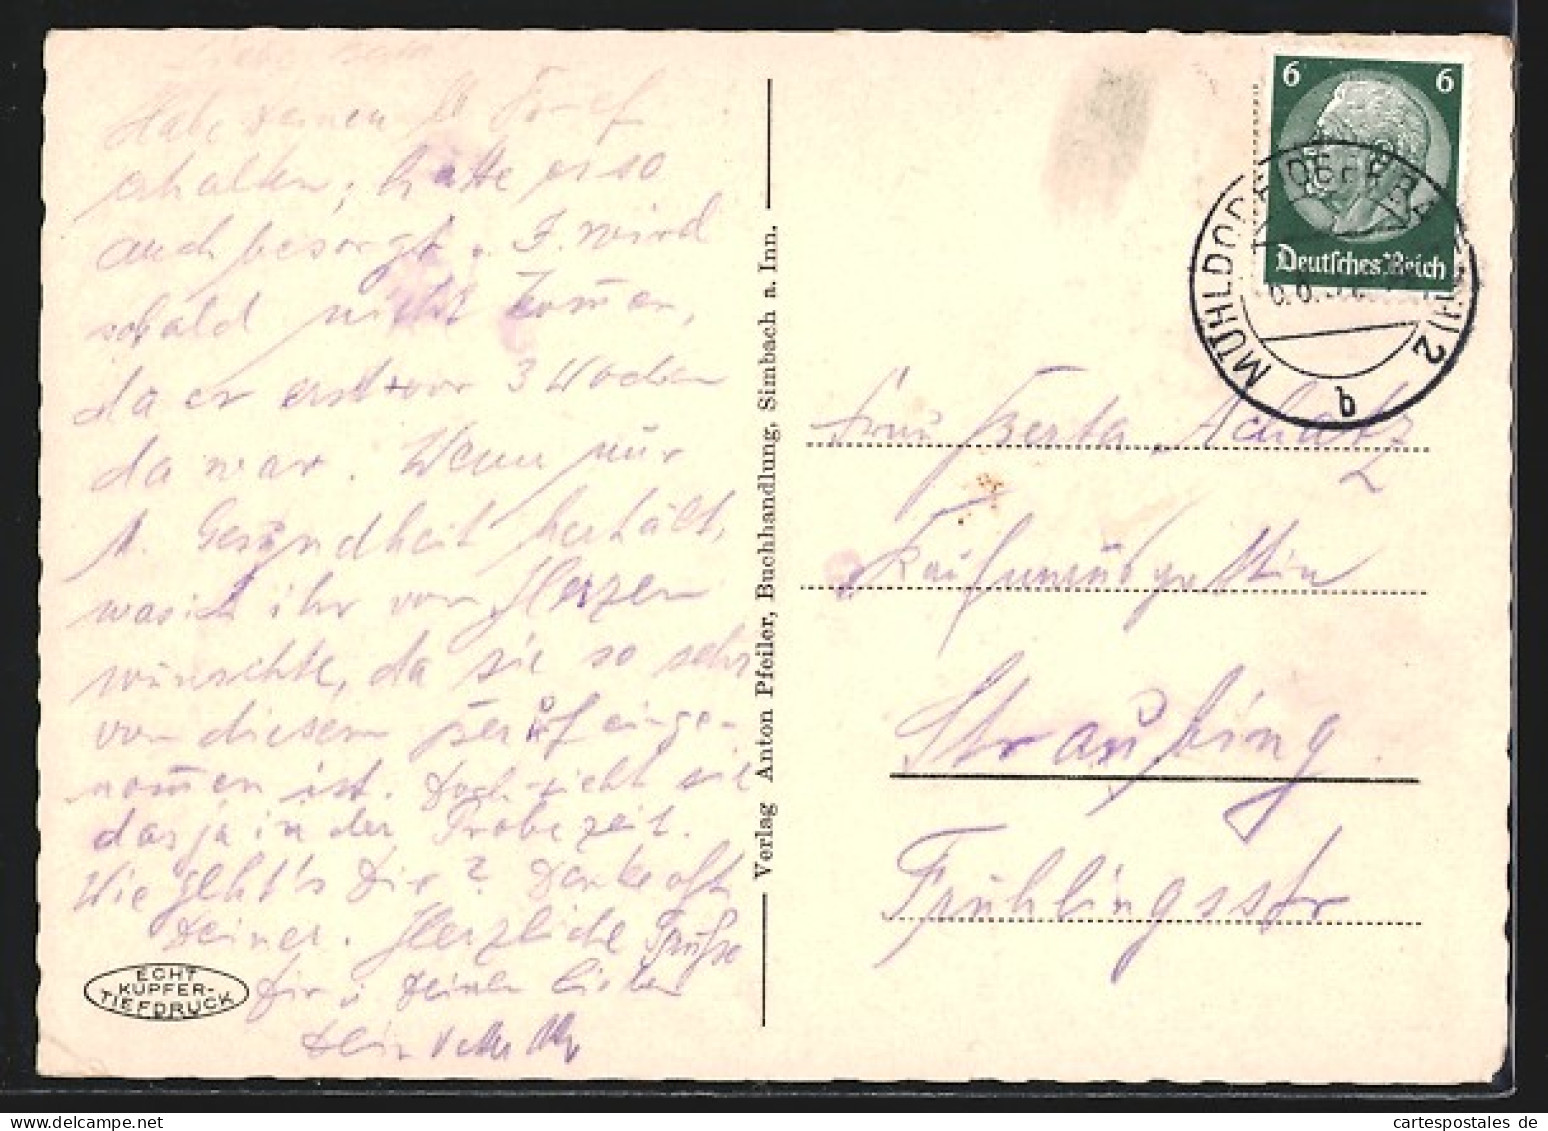 Liebe
Habe Deinen lb
erhalten; hätte es so
auch besorgt. J. wird
sobald nicht kommen,
da er erst vor 3 Wochen
da war. Wenn nur
A. Gesundheit herhält,
was ich ihr von Herzen
wünschte, da sie so sehr
von diesem Beruf einge-
nommen ist. Doch sieht sie
das ja in der Probezeit.
Wie geht's Dir? Denke oft
Deiner. Herzliche Grüße
Dir u Deinen Lieben
Dein
ECHT
KUPFER-
TIEFDRUCK
Verlag Anton Pfeiler, Buchhandlung, Simbach a. Inn.
6 6
Deutsches Reich
MÜHLDORF (OBERBAY) 2
b
Frau Berta Schatz
Straubing
Frühlingsstr
cartespostales de